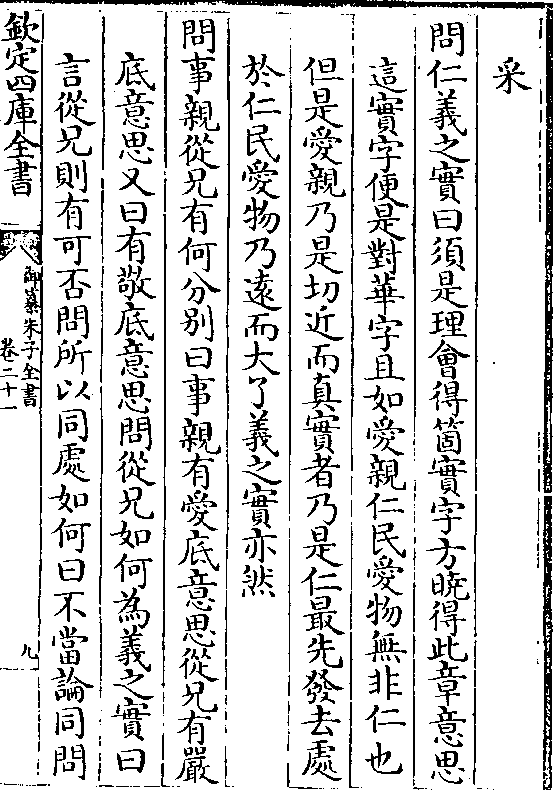 采
問仁義之實曰須是理會得箇實字方曉得此章意思
這實字便是對華字且如愛親仁民愛物無非仁也
但是愛親乃是切近而真實者乃是仁最先發去處
於仁民愛物乃遠而大了義之實亦然
問事親從兄有何分别曰事親有愛底意思從兄有嚴
底意思又曰有敬底意思問從兄如何為義之實曰
言從兄則有可否問所以同處如何曰不當論同問
欽定四庫全書
御纂朱子全書
卷二十一
九